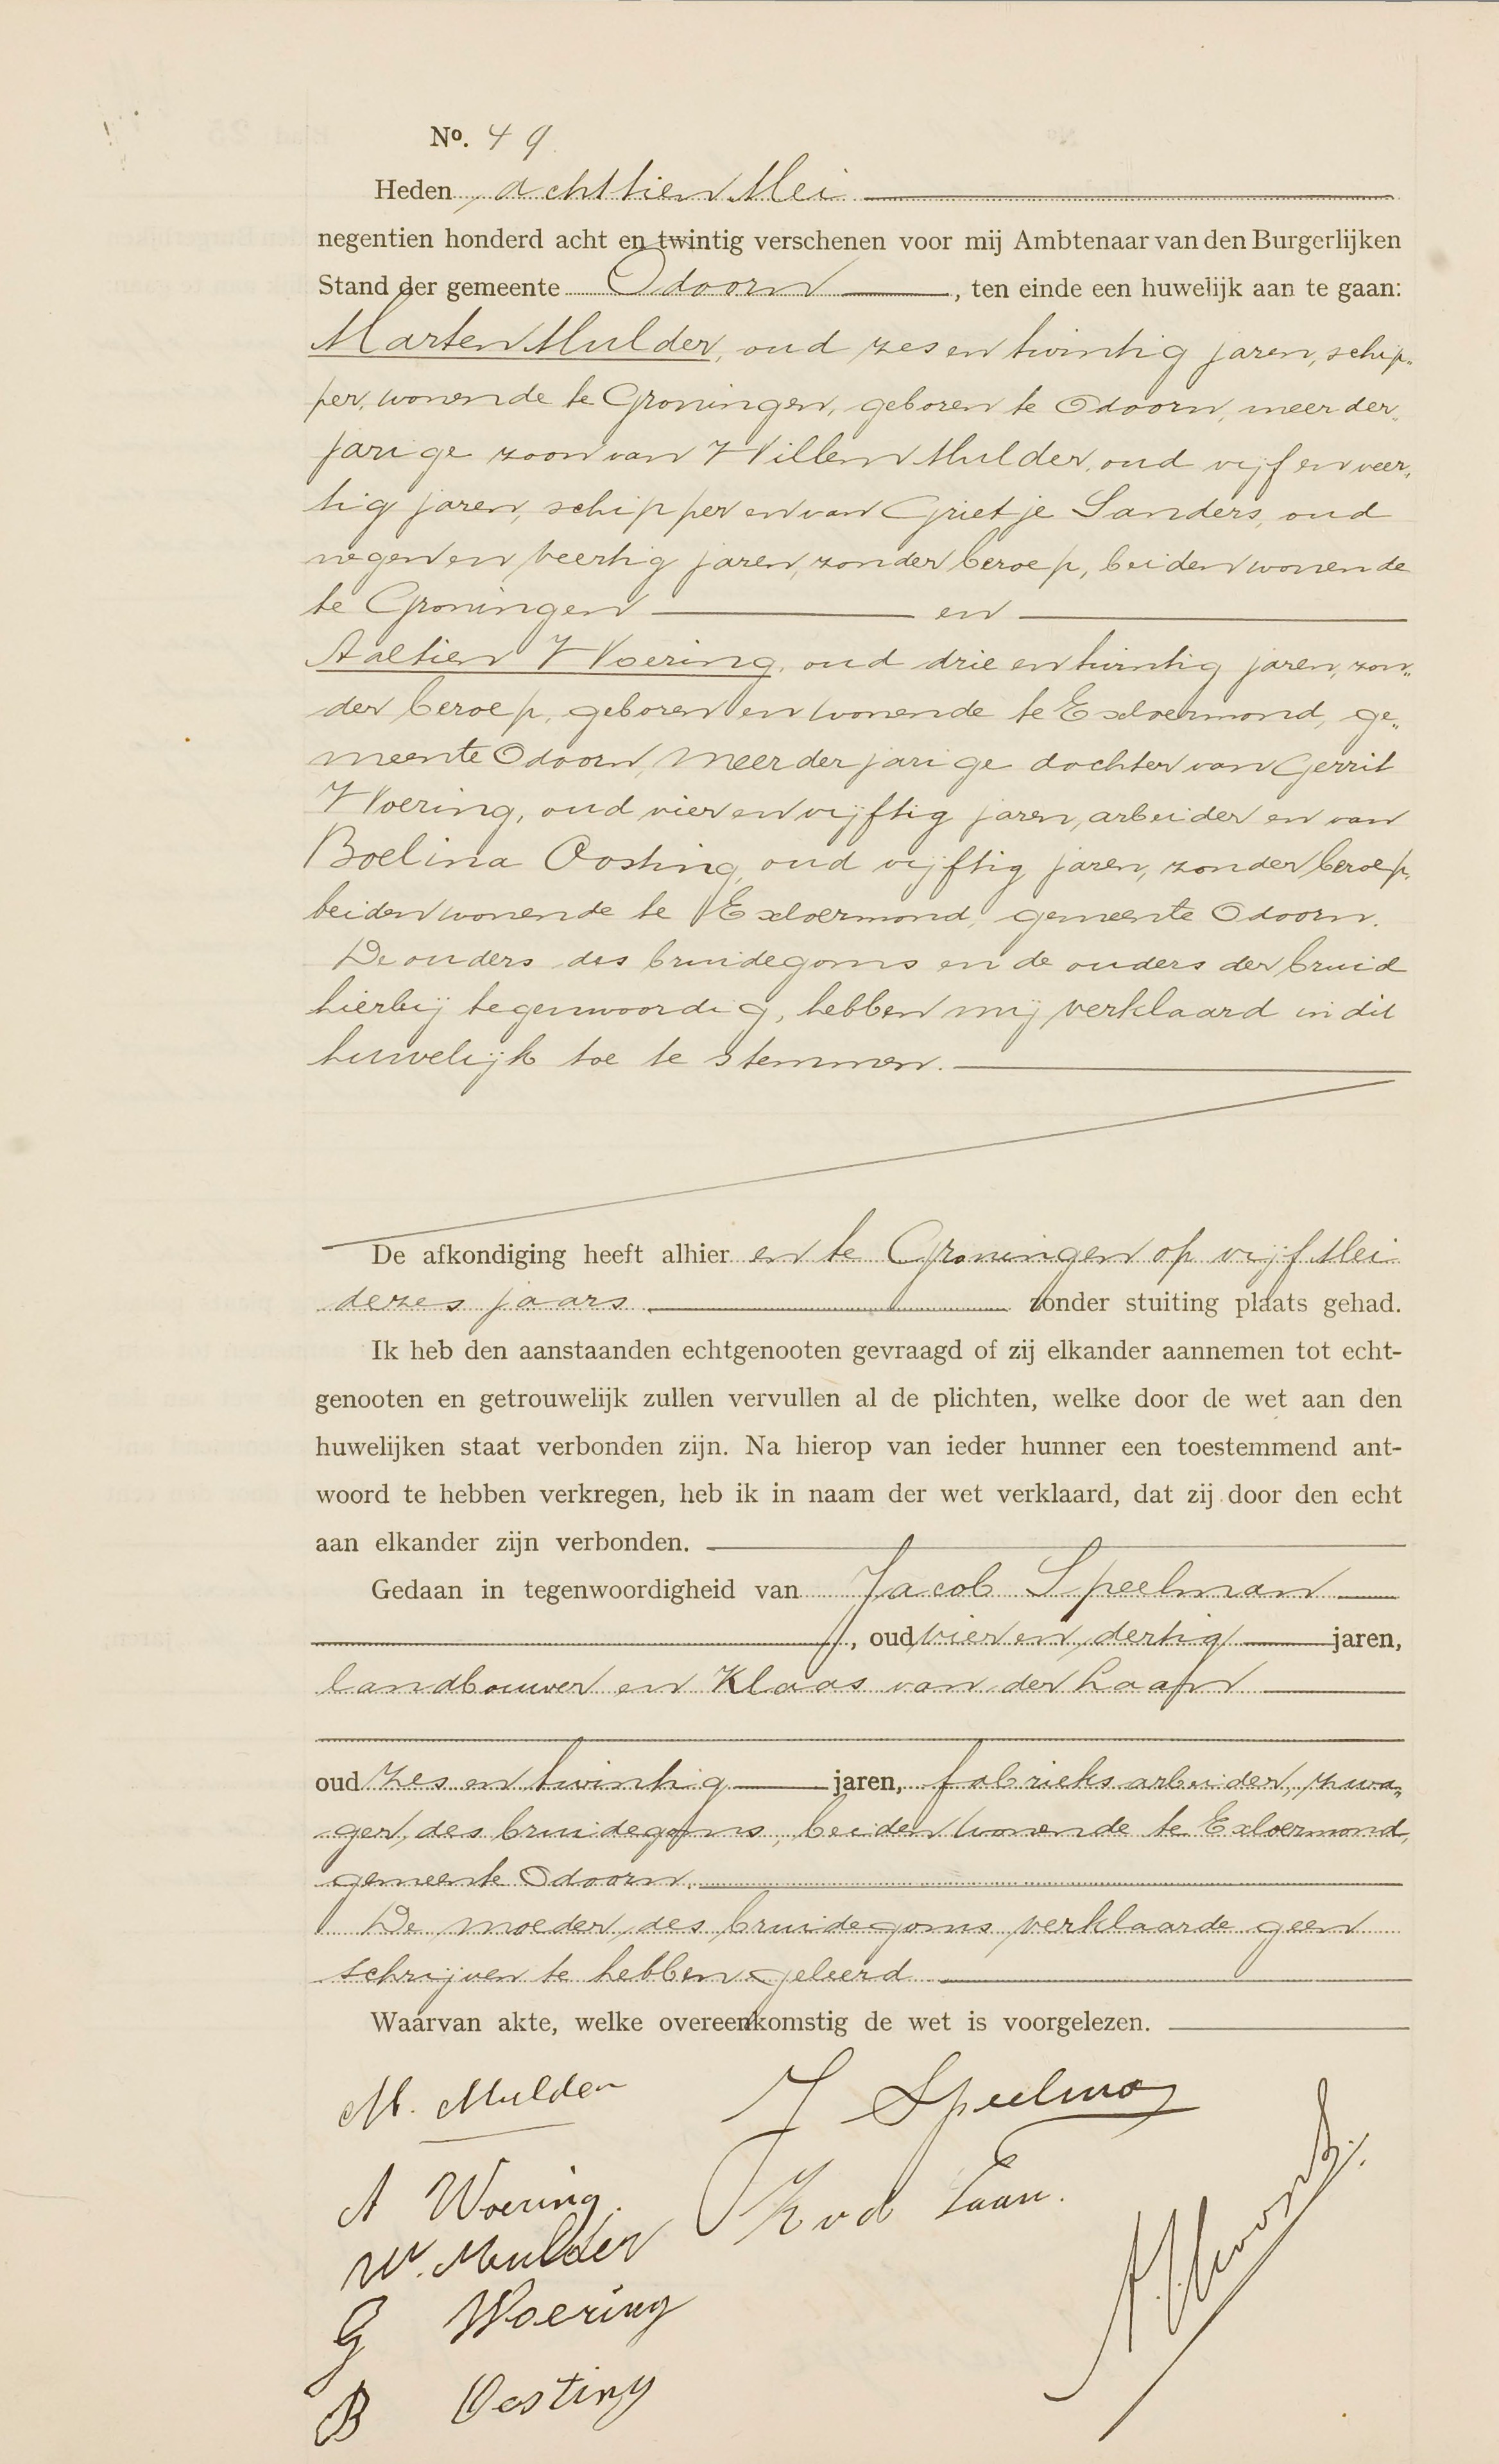 No. 49
Heden achttien Mei
negentien honderd acht en twintig verschenen voor mij Ambtenaar van den Burgerlijken
Stand der gemeente Odoorn, ten einde een huwelijk aan te gaan:
Marten Mulder, oud zes en twintig jaren, schip„
per, wonende te Groningen, geboren te Odoorn, meerder„
jarige zoon van Willem Mulder, oud vijf en veer„
tig jaren, schipper en van Grietje Sanders, oud
negen en veertig jaren, zonder beroep, beiden wonende
te Groningen en
Aaltien Woering, oud drie en twintig jaren, zon„
der beroep, geboren en wonende te Exloermond, ge„
meente Odoorn, meerderjarige dochter van Gerrit
Woering, oud vier en vijftig jaren, arbeider en van
Boelina Oosting, oud vijftig jaren, zonder beroep,
beiden wonende te Exloermond, gemeente Odoorn.
De ouders des bruidegoms en de ouders der bruid
hierbij tegenwoordig, hebben mij verklaard in dit
huwelijk toe te stemmen.
De afkondiging heeft alhier en te Groningen op vijf Mei
dezes jaars zonder stuiting plaats gehad.
Ik heb den aanstaanden echtgenooten gevraagd of zij elkander aannemen tot echt-
genooten en getrouwelijk zullen vervullen al de plichten, welke door de wet aan den
huwelijken staat verbonden zijn. Na hierop van ieder hunner een toestemmend ant-
woord te hebben verkregen, heb ik in naam der wet verklaard, dat zij door den echt
aan elkander zijn verbonden.
Gedaan in tegenwoordigheid van Jacob Speelman
, oud vier en dertig jaren,
landbouwer en Klaas van der Laan
oud zes en twintig jaren, fabrieksarbeider, zwa„
ger des bruidegoms, beiden wonende te Exloermond,
gemeente Odoorn.
De moeder des bruidegoms verklaarde geen
schrijven te hebben geleerd
Waarvan akte, welke overeenkomstig de wet is voorgelezen.
M. Mulder
J Speelman
A Woering.
K v d Laan.
W. Mulder
G Woering
B Oosting